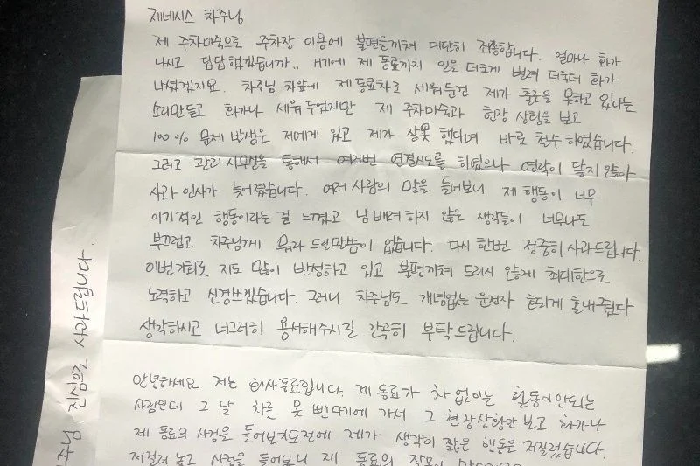 제네시스 차주님
제 주차미숙으로 주차장 이용에 불편을끼쳐 대단히 죄송합니다. 얼마나 화가
나시고 답답했겠습니까.. 거기에 제 동료까지 일을 더크게 벌려 더욱더 화가
내셨겠지요. 차주님 차앞에 제 동료차로 세워둔건 제가 출근을 못하고 있다는
소리만듣고 화가나 세워두었지만 제 주차미숙과 현장 상황을 보고
100% 문제 발생은 저에게 있고 제가 잘못 했다며 바로 철수 하였습니다.
그리고 관리 사무실을 통해서 여러번 연결시도를 하였으나 연락이 닿지 않아
사과 인사가 늦어졌습니다. 여러 사람의 말을 들어보니 제 행동이 너무
이기적인 행동이라는 걸 느꼈고 남 배려 하지 않은 생각들이 너무나도
부끄럽고 차주님께 뭐라 드릴말씀이 없습니다. 다시 한번 정중히 사과드립니다
이번기회로 저도 많이 반성하고 있고 불편끼쳐 드리지 않게 최대한으로
노력하고 신경쓰겠습니다. 그러니 차주님도 개념없는 운전자 호되게 혼내줬다
생각하시고 너그러히 용서해주시길 간곡히 부탁드립니다.
안녕하세요 저는 회사동료입니다. 제 동료가 차 없이는 활동이안되는
사람인데 그 날 차를 못 뺀다기에 가서 그 현장상황만 보고 화가나
제 동료의 사정을 들어보기도전에 제가 생각이 짧은 행동을 저질렀습니다.
저질러 놓고 사정을 들어보니 제 동료의 잘못이
차주님 진심으로 사과드립니다.